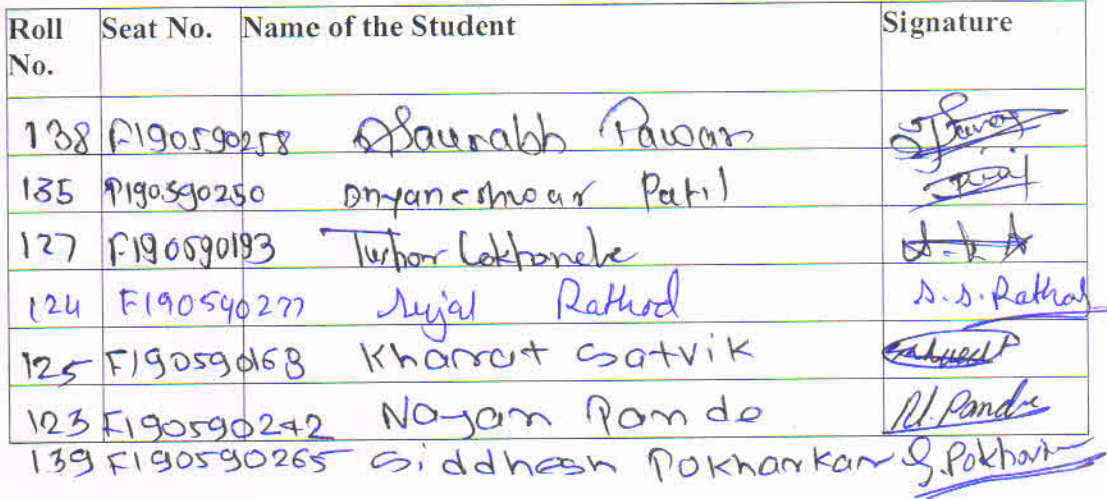 Roll No. Seat No. Name of the Student Signature
138 F190590258 Saurabh Pawar
135 F190590250 Dnyaneshwar Patil
127 F190590193 Tushar Lokhande
124 F190590277 Sujal Rathod S.S.Rathod
125 F190590168 Kharat Satvik
123 F190590242 Nayan Pande N.Pande
139 F190590265 Siddhesh Pokharkar S.Pokhar